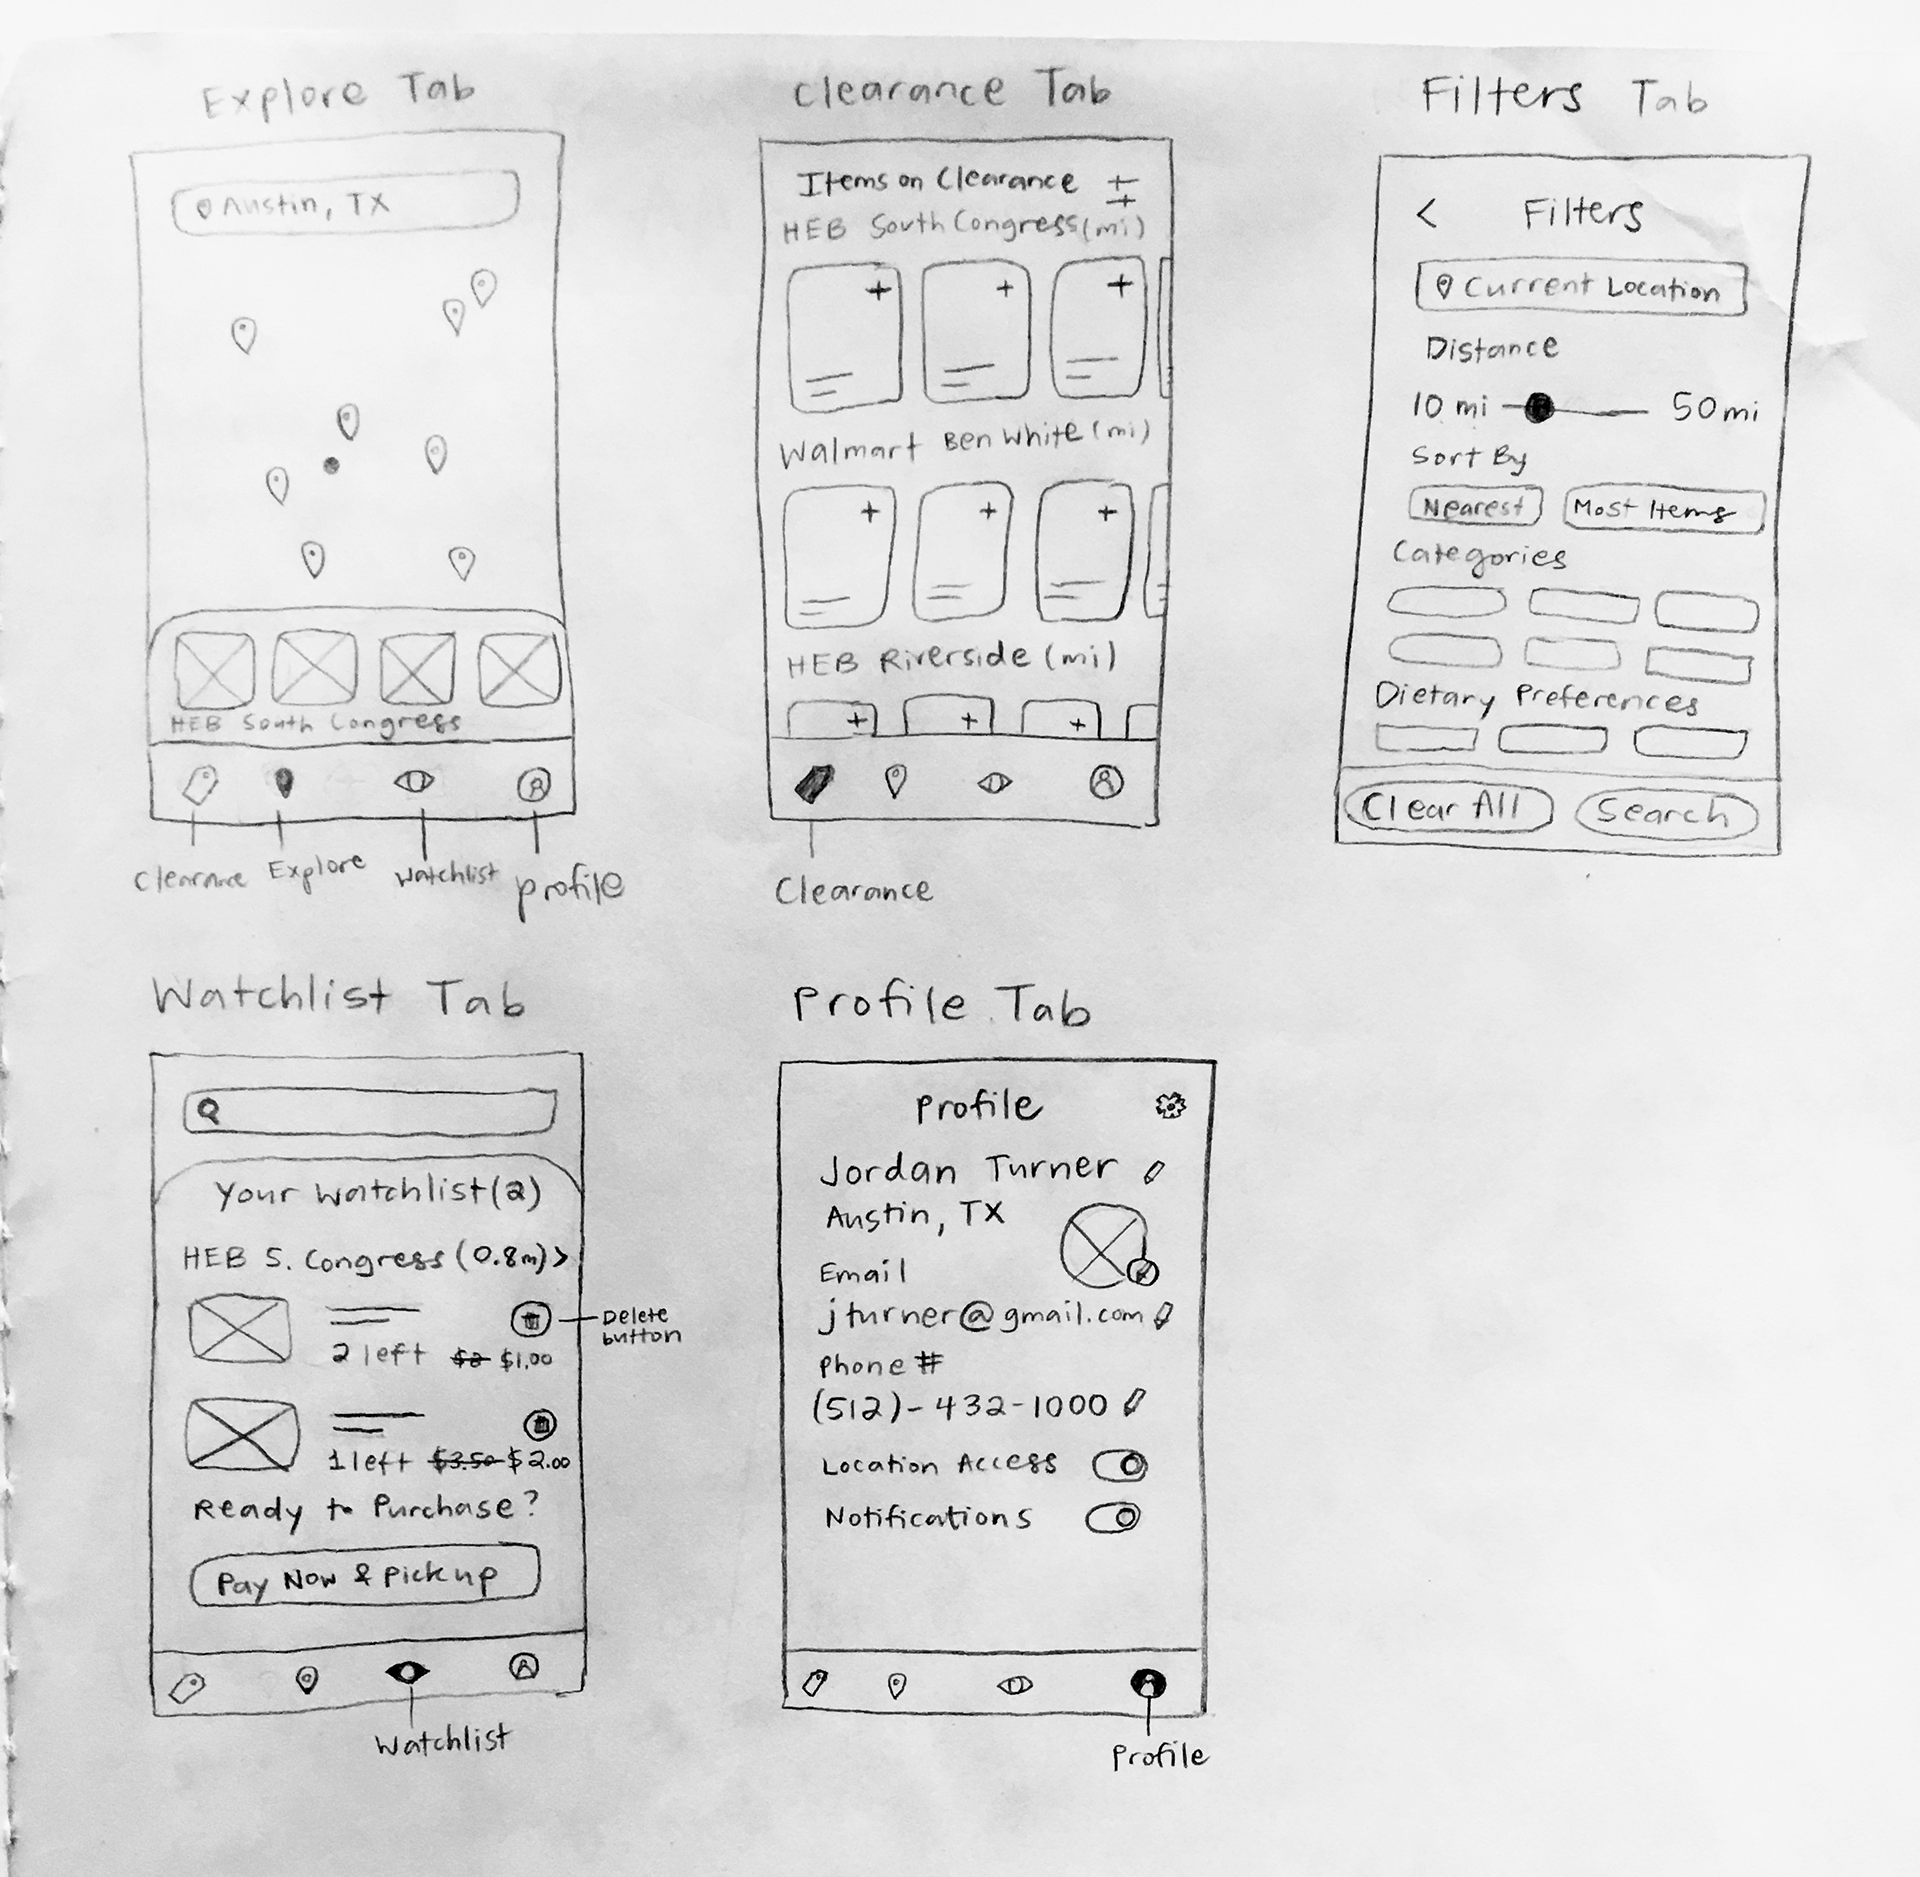 Explore Tab
Austin, TX
HEB South Congress
Clearance Explore Watchlist Profile
Clearance Tab
Items on Clearance
HEB South Congress (mi)
+ + +
Walmart Ben White (mi)
+ + +
HEB Riverside (mi)
+ + +
Clearance
Filters Tab
< Filters
Current Location
Distance
10 mi 50 mi
Sort By
Nearest Most Items
Categories
Dietary Preferences
Clear All Search
Watchlist Tab
Your Watchlist (2)
HEB S. Congress (0.8m) >
Delete
button
2 left $2 $1.00
1 left $3.50 $2.00
Ready to Purchase?
Pay Now & Pickup
Watchlist
Profile Tab
Profile
Jordan Turner
Austin, TX
Email
jturner@gmail.com
Phone #
(512)-432-1000
Location Access
Notifications
Profile